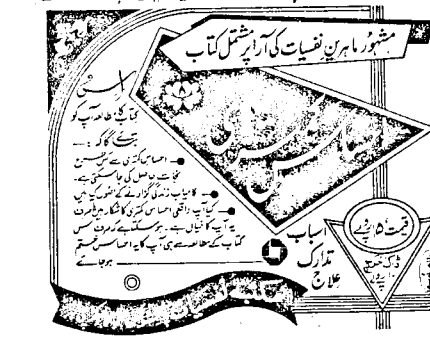 مشہور ماہرین نفسیات کی آرا پر مشتمل کتاب
اس
کتاب کا مطالعہ آپ کو
بتائے گا کہ :—
احساس کمتری سے کس طرح
نجات حاصل کی جا سکتی ہے۔
کامیاب زندگی گزارنے کے اصول کیا ہیں
کیا آپ واقعی احساس کمتری کا شکار ہیں یا صرف
یہ آپ کا خیال ہے۔ ہو سکتا ہے کہ صرف اس
کتاب کے مطالعہ سے ہی آپ کا یہ احساس ختم
ہو جائے
احساس کمتری
اسباب
تدارک
علاج
قیمت ۱۵ روپے
ڈاک خرچ
۱۰ روپے